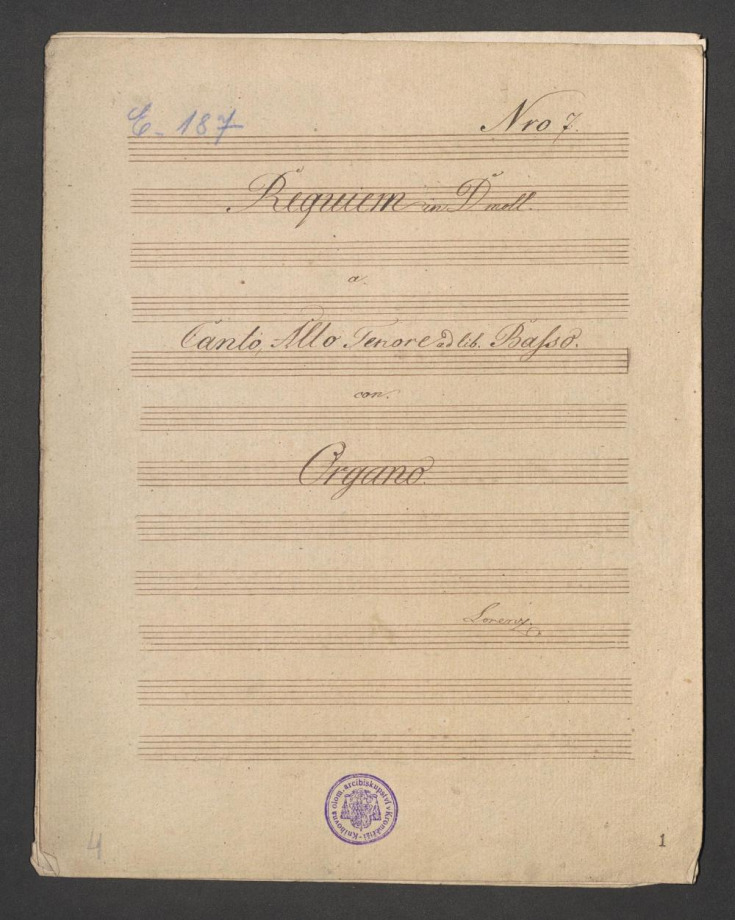 E. 187
Nro 7.
Requiem in D moll.
a
Canto, Alto Tenore ad lib. Baſso.
con.
Organo.
Lorenz
Knihovna olom. arcibiskupství v Kroměříži
4
1